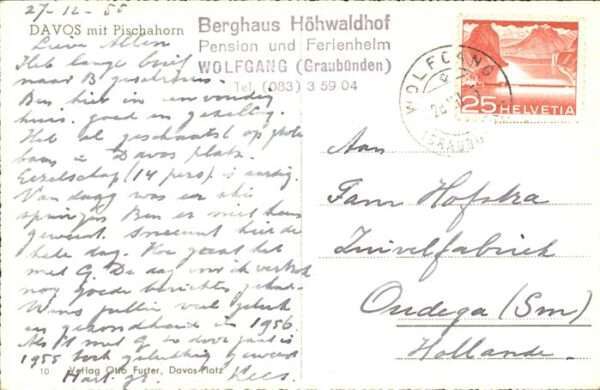 27-12-55
DAVOS mit Pischahorn
Berghaus Höhwaldhof
Pension und Ferienheim
WOLFGANG (Graubünden)
Tel. (083) 3 59 04
WOLFGANG
25 HELVETIA
Lieve Allen
Heb lange brief
naar B geschreven.
Ben hier in eenvoudig
huis. goed en gezellig.
Heb al geschaatst op grote
baan in Davos platz.
Gezelschap (14 pers) is aardig.
Van dagg was er ski
springen Ben er niet heen
geweest. Sneeuwt hier de
hele dag. Hoe gaat het
met G. De dag voor ik vertrok
nog goede berichten gehad.
Wens jullie veel geluk
en gezondheid in 1956.
Als't met G zo door gaat is
1955 toch gelukkig geweest
Hart. gr. Kees
Aan
Fam Hofstra
Zuivelfabriek
Oudega (Sm)
Hollande.
10 Verlag Otto Furter, Davos-Platz